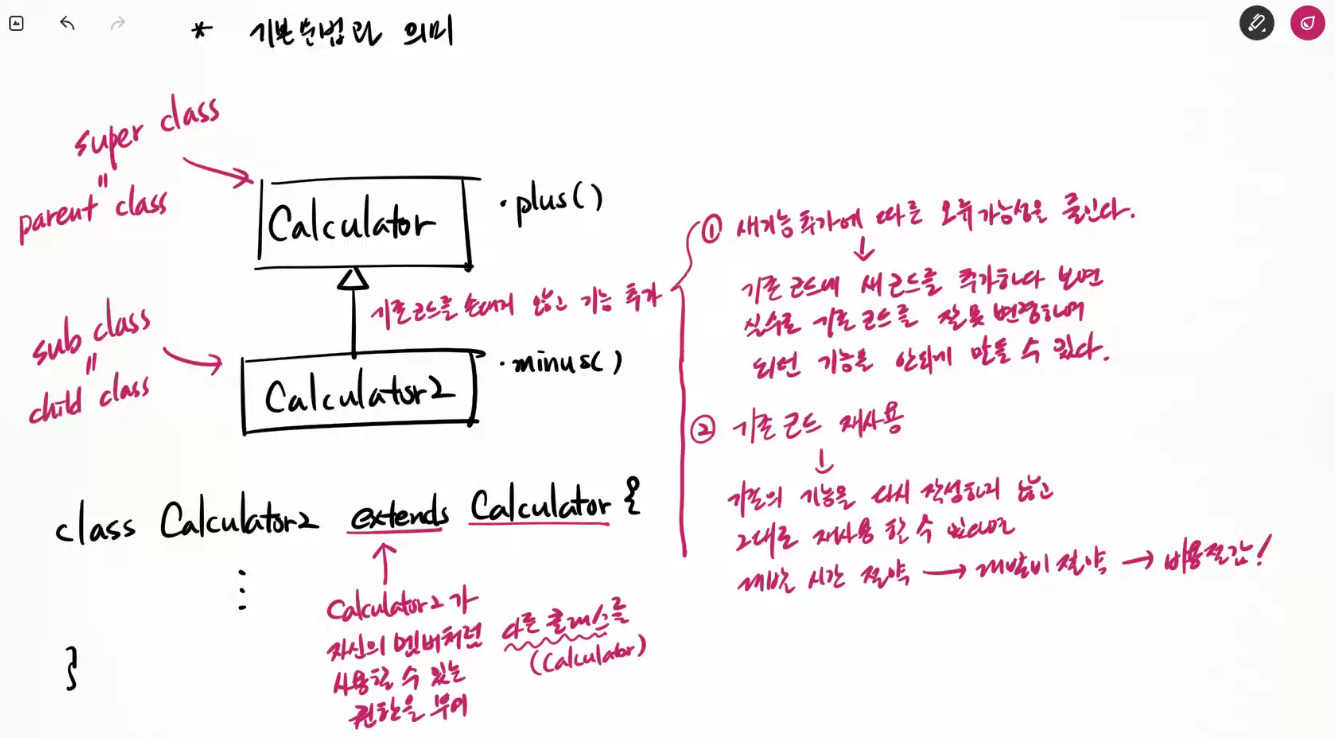 * 기본문법과 의미
super class
"
parent class
Calculator
• plus()
기존코드를 손대지 않고 기능 추가
sub class
"
child class
Calculator2
• minus()
class Calculator2 extends Calculator {
⋮
}
Calculator2가
자신의 멤버처럼
사용할 수 있는
권한을 부여
다른 클래스를
(Calculator)
① 새기능추가에 따른 오류가능성을 줄인다.
↓
기존 코드에 새 코드를 추가하다 보면
실수로 기존 코드를 잘못 변경하여
되던 기능을 안되게 만들 수 있다.
② 기존 코드 재사용
↓
기존의 기능을 다시 작성하지 않고
그대로 재사용 할 수 있으면
개발 시간 절약 → 개발비 절약 → 비용절감!